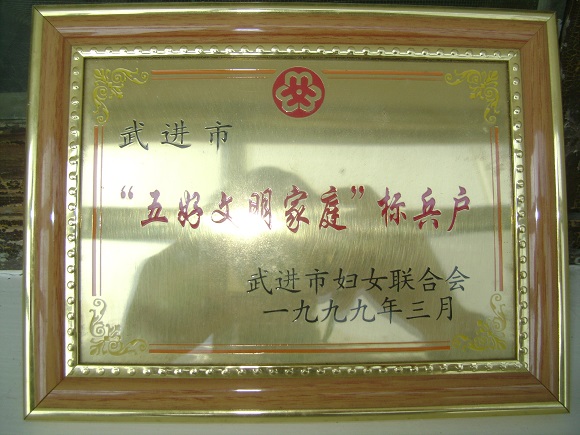 武进市
“五好文明家庭”标兵户
武进市妇女联合会
一九九九年三月